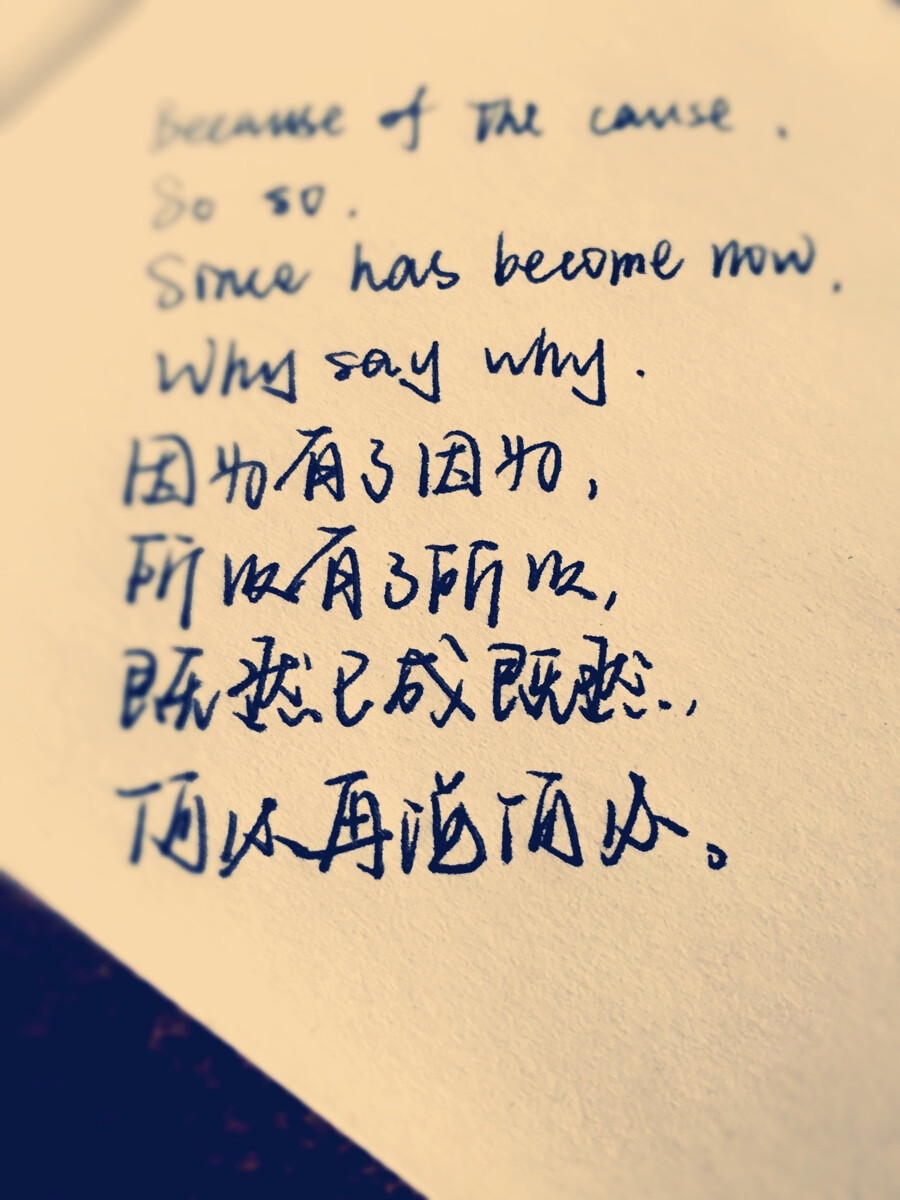 Because of the cause.
So so.
Since has become now.
Why say why.
因为有了因为,
所以有了所以,
既然已成既然,
何必再说何必。